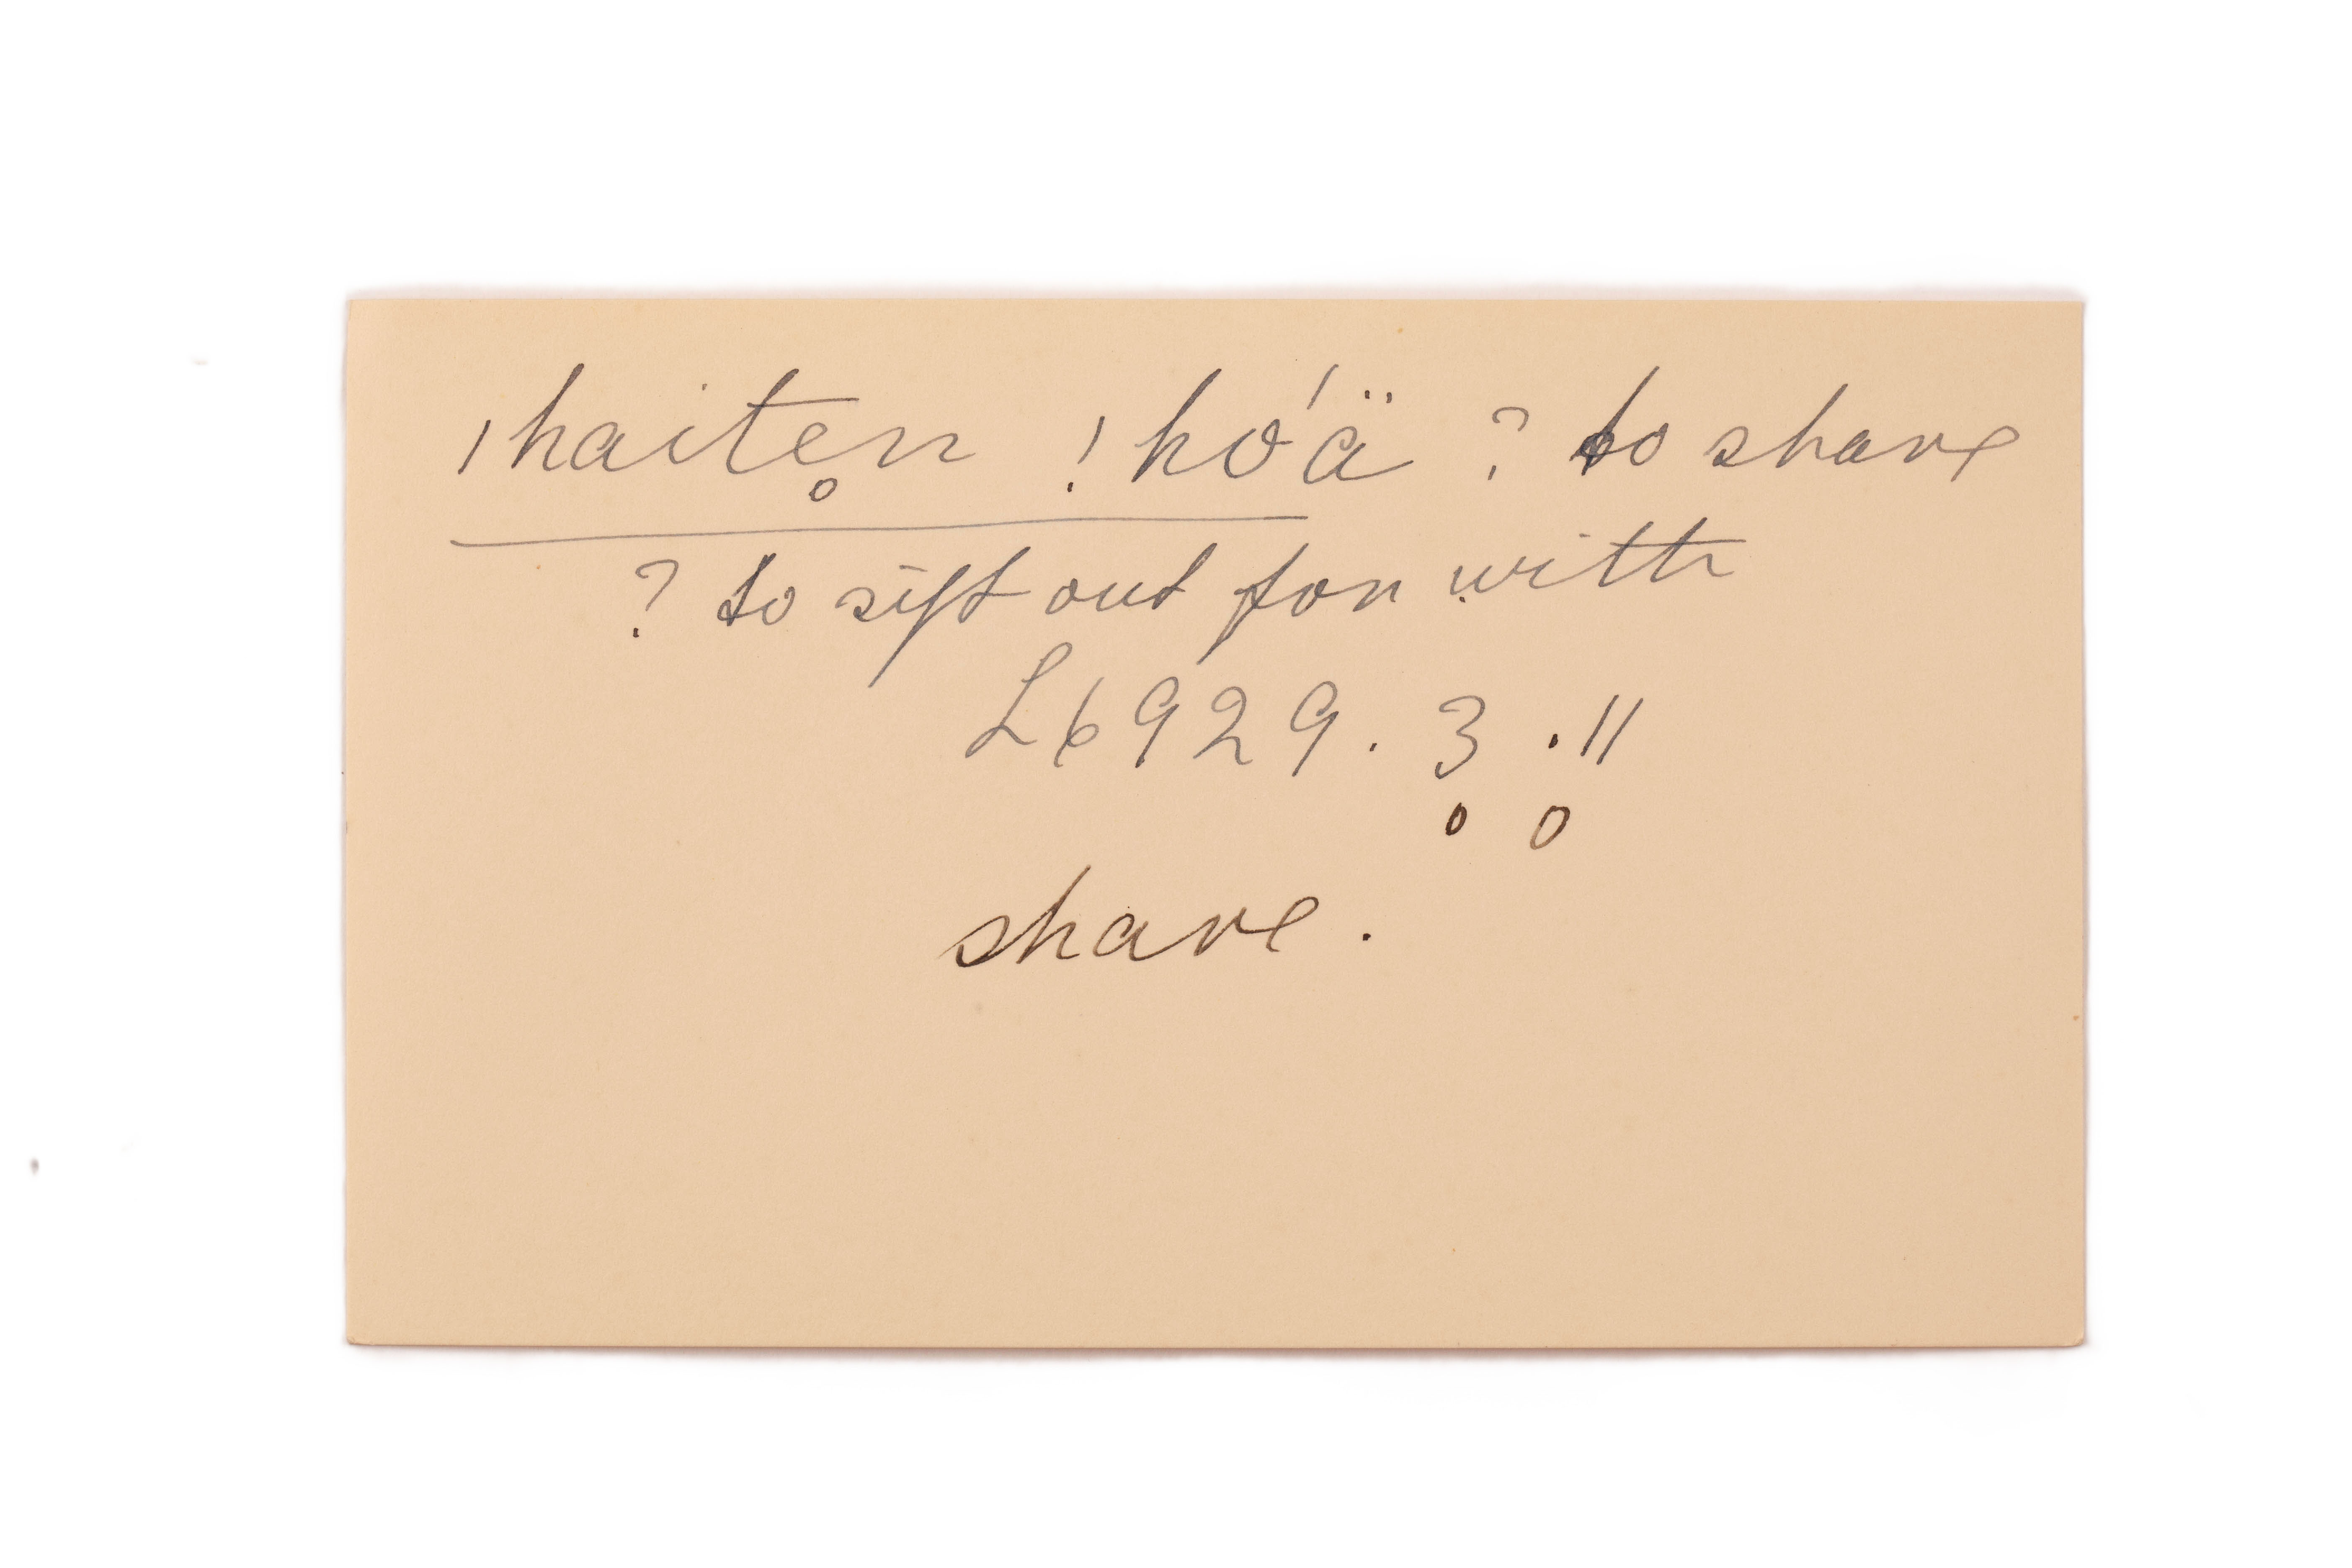 ǀhaite̥n !hó'ä ? to share
? to sift out for with
L6929. 3 . 11
o o
share .